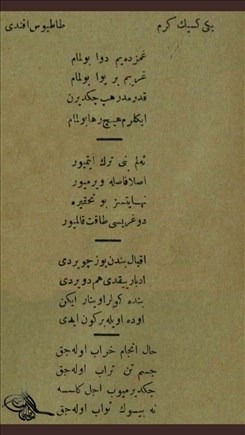 یكی كسیك كرم طاطیوس افندی
غمزده‌یم دوا بولمام
غریبم بر یوا بولمام
قدرمدر هپ چكدیرن
ایكلرم هیچ رها بولمام
ئه‌لم بنی ترك ایتمیور
اصلا فاصله ویرمیور
نهایتسز بو تحقیره
دوغریسی طاقت قالمیور
اقبال بندن یوز چویردی
ادبار ییقدی هم دویردی
بنده كولر اوینار ایكن
اوده اویله بر كون ایدی
حال انجام خراب اوله جق
جسم تن تراب اوله جق
چكدیرمیوب اجل كاسسه
نه بیوك ثواب اوله جق